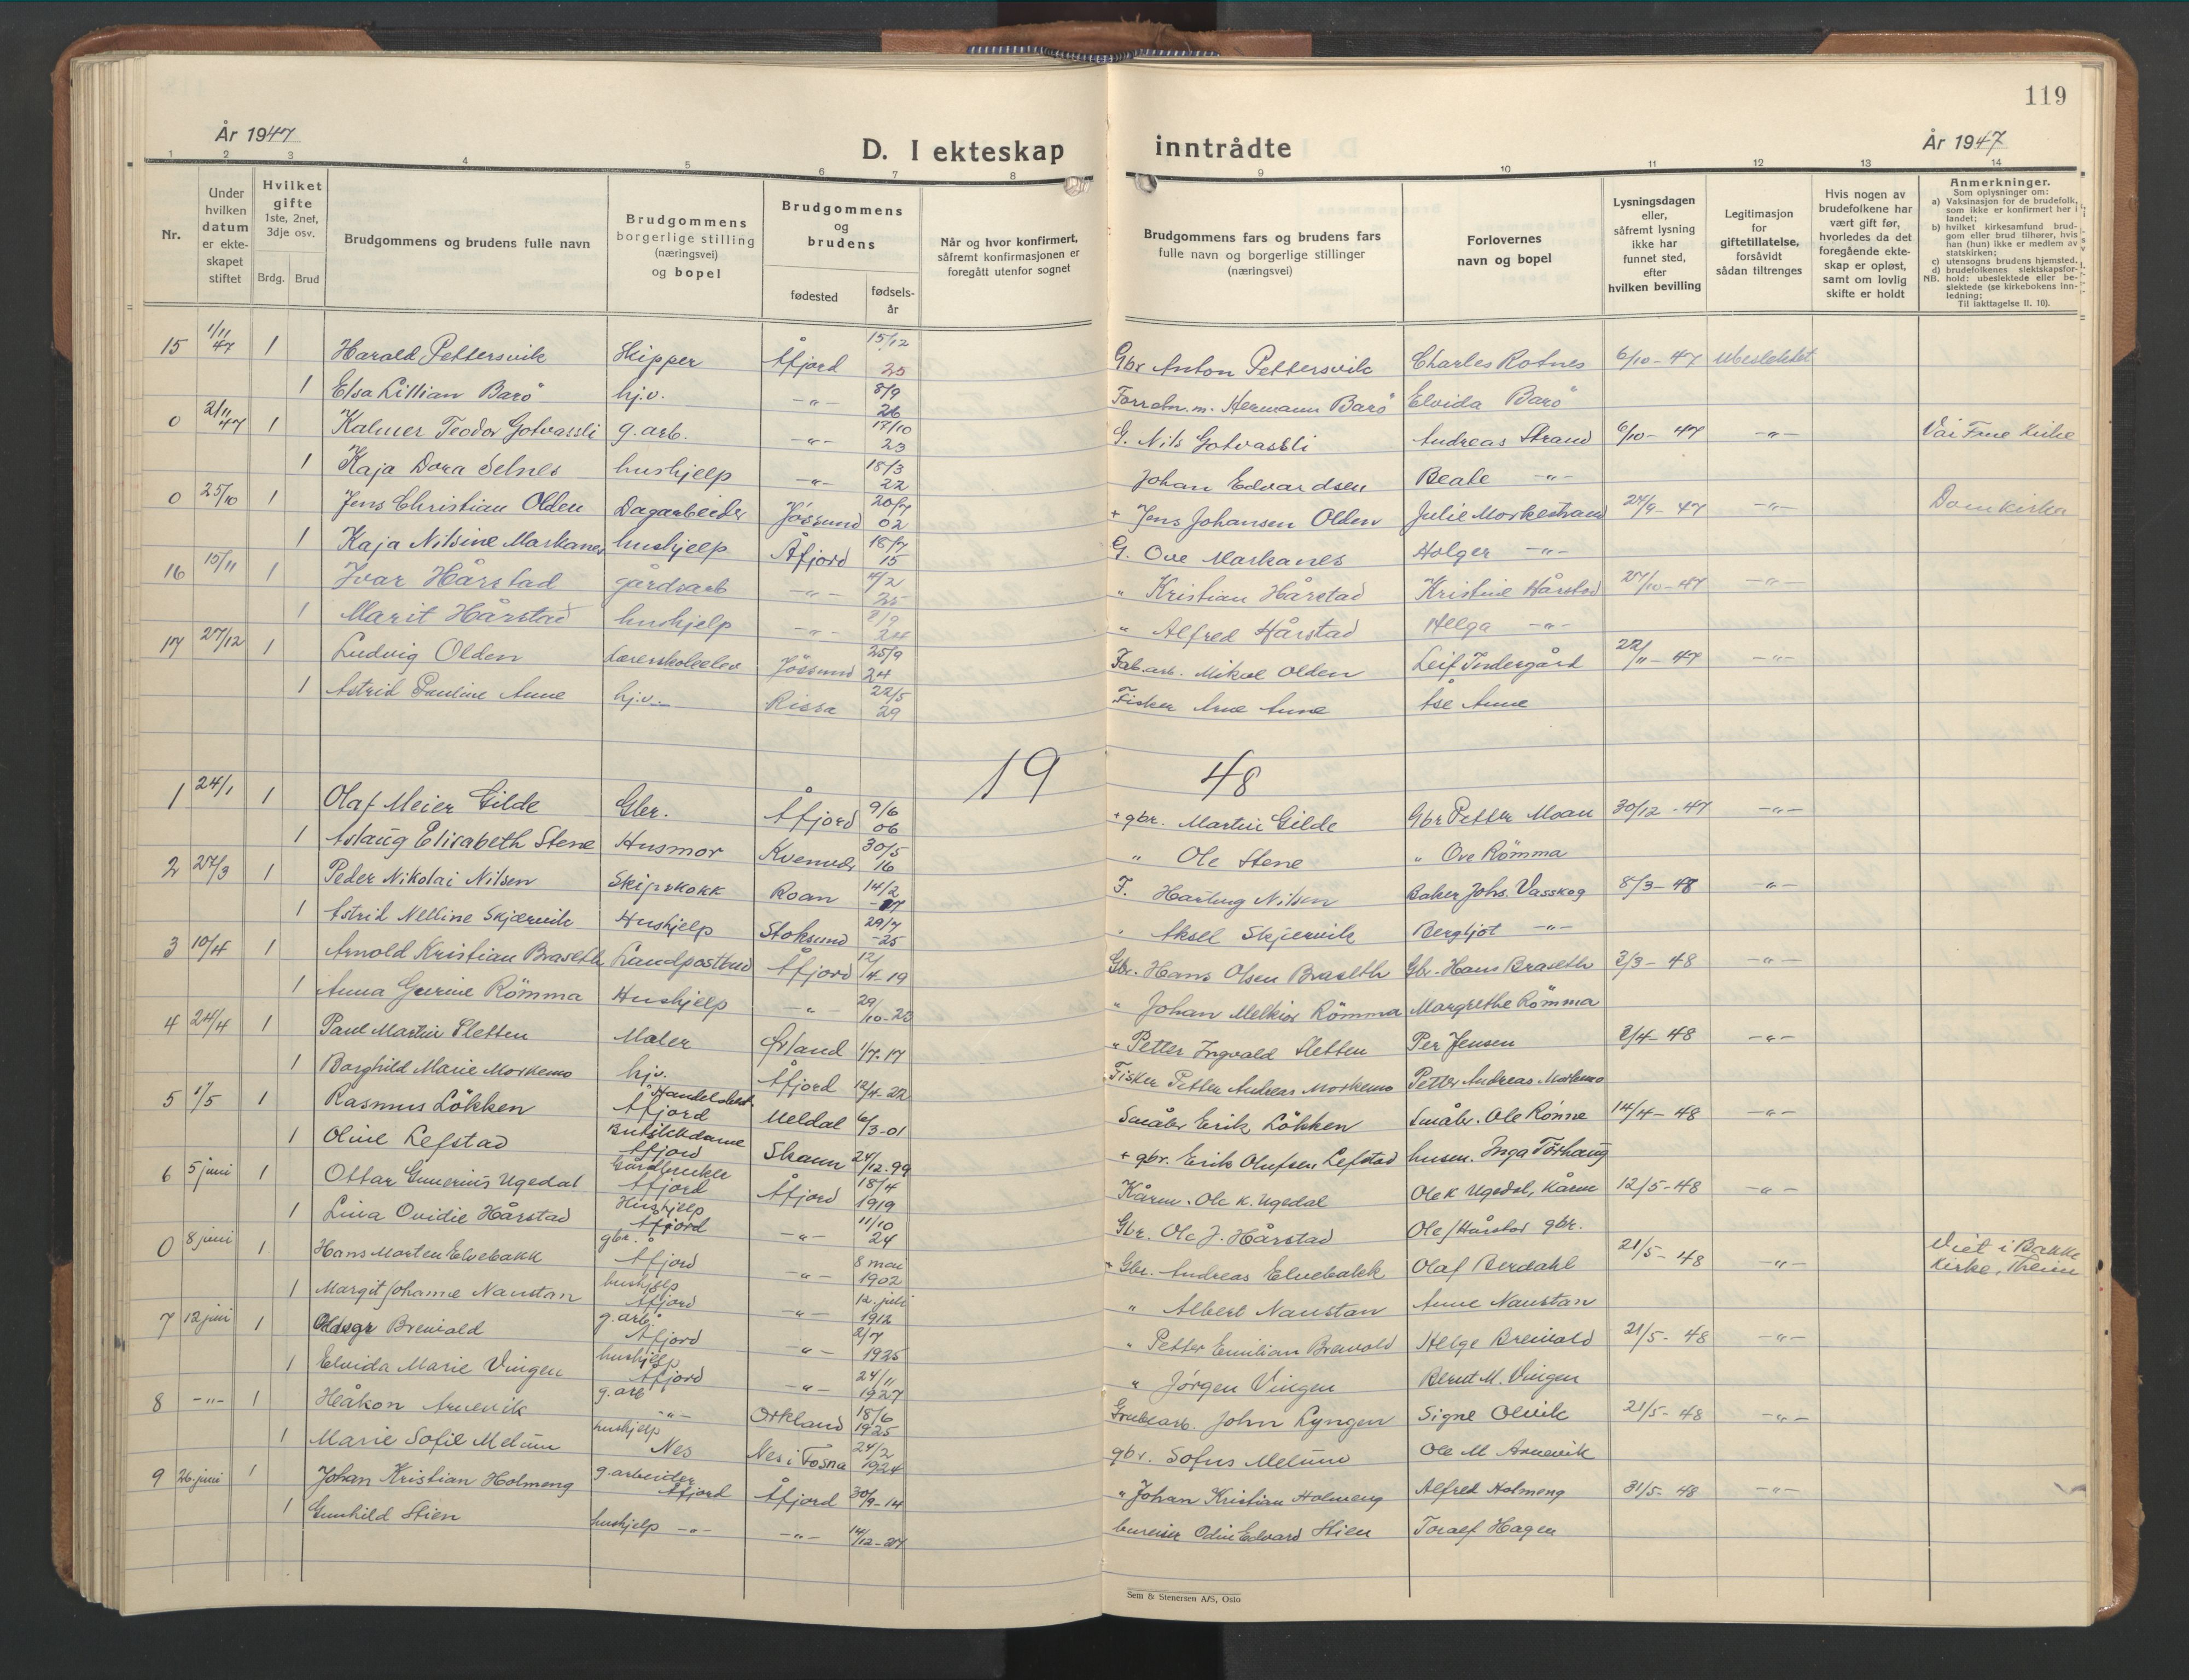 119
År 1947
D. I ekteskap inntrådte
År 1947
1 2 3 4 5 6 7 8 9 10 11 12 13 14
Nr.
Under hvilken datum er ekteskapet stiftet
Hvilket gifte 1ste, 2net, 3dje osv.
Brdg. Brud
Brudgommens og brudens fulle navn
Brudgommens borgerlige stilling (næringsvei) og bopel
Brudgommens og brudens
fødested
fødselsår
Når og hvor konfirmert, såfremt konfirmasjonen er foregått utenfor sognet
Brudgommens fars og brudens fars fulle navn og borgerlige stillinger (næringsvei)
Forlovernes navn og bopel
Lysningsdagen eller, såfremt lysning ikke har funnet sted, efter hvilken bevilling
Legitimasjon for giftetillatelse, forsåvidt sådan tiltrenges
Hvis nogen av brudefolkene har vært gift før, hvorledes da det foregående ekteskap er opløst, samt om lovlig skifte er holdt
Anmerkninger.
Som oplysninger om:
a) Vaksinasjon for de brudefolk, som ikke er konfirmert her i landet;
b) hvilket kirkesamfund brudgom eller brud tilhører, hvis han (hun) ikke er medlem av statskirken;
c) utensogns brudens hjemsted.
d) brudefolkenes slektskapsforhold: ubeslektede eller beslektede (se kirkebokens innledning;
NB.
Til iakttagelse II. 10).
15 1/11 47 1 Harald Pettersvik Skipper Åfjord 15/12 25 Gbr Anton Pettersvik Charles Rotnes 6/10-47 Ubeslektet
1 Elsa Lillian Barö hj.v. -"- 8/9 26 Forretn.m. Hermann Barö Elvida Barö
0 2/11 47 1 Kalmer Teodor Gotvassli g.arb. -"- 17/10 23 G. Nils Gotvassli Andreas Strand 6/10-47 -"- Vår Frue Kirke
1 Kaja Dora Selnes hushjelp -"- 18/3 22 Johan Edvardsen Beate -"-
0 25/10 1 Jens Christian Olden Dagarbeider Jössund 20/7 02 + Jens Johansen Olden Julie Morkestrand 27/9-47 -"- Domkirka
1 Kaja Nilsine Markanes hushjelp Åfjord 18/7 15 G. Ove Markanes Holger -"-
16 15/11 1 Ivar Hårstad gårdsarb -"- 4/2 25 " Kristian Hårstad Kristine Hårstad 27/10-47 -"-
1 Marit Hårstad hushjelp -"- 8/9 24 " Alfred Hårstad Helga -"-
17 27/12 1 Ludvig Olden Lærerskoleelev Jössund 25/9 24 Fab.arb. Mikal Olden Leif Indergård 22/11-47 -"-
1 Astrid Pauline Aune hj.v. Rissa 22/5 29 Fisker Arne Aune Åse Aune
19 48
1 24/1 1 Olaf Meier Gilde Gbr. Åfjord 9/6 06 + gbr. Martin Gilde Gbr Petter Moan 30/12-47 -"-
1 Aslaug Elisabeth Stene Husmor Kvenvær 30/5 16 " Ole Stene " Ove Römma
2 27/3 1 Peder Nikolai Nilsen Skipskokk Roan 14/2 -17 F. Hartvig Nilsen Baker Johs. Vasskog 8/3-48 -"-
1 Astrid Nelline Skjærvik Hushjelp Stoksund 29/7 -25 " Aksel Skjærvik Bergljot -"-
3 10/4 1 Arnold Kristian Braseth Landpostbud Åfjord 12/4-19 Gbr. Hans Olsen Braseth Gbr. Hans Braseth 3/3-48 -"-
1 Anna Gurine Römma Hushjelp -"- 29/10-23 " Johan Melkior Römma Margrethe Römma
4 24/4 1 Paul Martin Sletten Maler Ørland 1/7-17 " Petter Ingvald Sletten Per Jensen 8/4-48 -"-
1 Borghild Marie Morkemo hjv. Åfjord 12/4-22 Fisker Petter Andreas Morkemo Petter Andreas Morkemo
5 1/5 1 Rasmus Lökken Handelsbest. Åfjord Meldal 6/3-01 Småbr Erik Lökken Småbr. Ole Rönne 14/4-48 -"-
1 Oline Lefstad Butikkdame Åfjord Skaun 24/12-99 + gbr. Erik Olufsen Lefstad husm. Inga Törhaug
6 5 juni 1 Ottar Gunerius Ugedal Gårdbruker Åfjord Åfjord 18/4 1919 Kårm. Ole K. Ugedal Ole K Ugedal, Kårm 12/5-48 -"-
1 Lina Ovidie Hårstad Hushjelp Åfjord -"- 11/10 24 Gbr. Ole J. Hårstad Ole J Hårstad gbr.
0 8 juni 1 Hans Morten Elvebakk gbr. Åfjord -"- 8 mai 1902 + Gbr. Andreas Elvebakk Olaf Berdahl 21/5-48 -"- Viet i Bakke Kirke, Theim
1 Margit Johanne Naustan hushjelp Åfjord -"- 12. juli 1912 " Albert Naustan Anne Naustan
7 12 juni 1 Oddvar Breivold g.arb. Åfjord -"- 2/7 1925 " Petter Emilian Breivold Helge Breivold 21/5-48 -"-
1 Elvida Marie Vingen hushjelp Åfjord -"- 24/11 1927 " Jørgen Vingen Bernt M. Vingen
8 -"- 1 Håkon Arnevik g.arb -"- Orkland 18/6 1925 Grubearb. John Lyngen Signe Olvik 21/5-48 -"-
1 Marie Sofie Melum hushjelp Nes Nes i Fosna 24/2 1924 gbr. Sofus Melum Ole M Arnevik
9 26. juni 1 Johan Kristian Holmeng g.arbeider Åfjord Åfjord 30/9-14 " Johan Kristian Holmeng Alfred Holmeng 31/5-48 -"-
1 Gunhild Stien hushjelp -"- -"- 14/12-27 bureiser Odin Edvard Stien Toralf Hagen
Sem & Stenersen A/S, Oslo